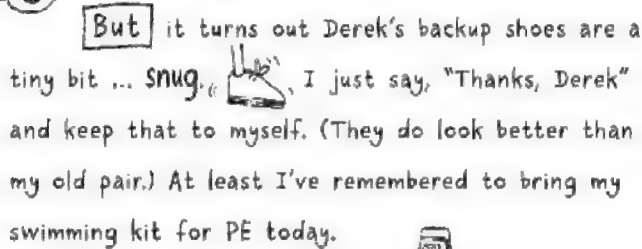 But it turns out Derek's backup shoes are a
tiny bit ... snug. I just say, "Thanks, Derek"
and keep that to myself. (They do look better than
my old pair.) At least I've remembered to bring my
swimming kit for PE today.